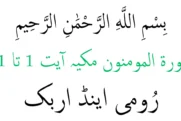 بِسْمِ اللَّهِ الرَّحْمَٰنِ الرَّحِيمِ
ورۃ المومنون مکیہ آیت 1 تا 1
رُومی اینڈ اربک